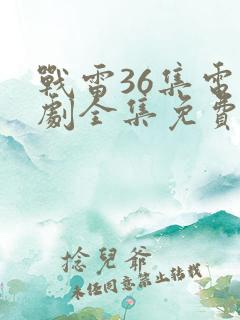 戰雷36集電
劇全集免費
捻兒爺
未經同意禁止轉載